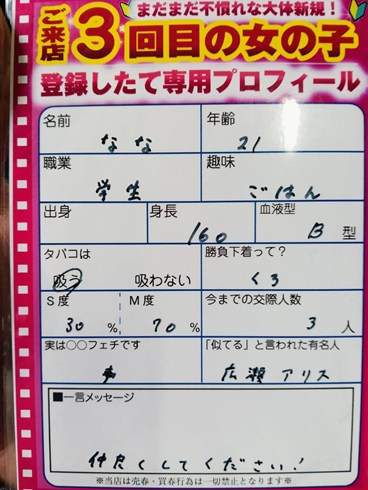 まだまだ不慣れな大体新規!
ご来店3回目の女の子
登録したて専用プロフィール
名前 なな
年齢 21
職業 学生
趣味 ごはん
出身
身長 160
血液型 B型
タバコは 吸う 吸わない
勝負下着って? くろ
S度 30%
M度 70%
今までの交際人数 3人
実は○○フェチです
「似てる」と言われた有名人 広瀬アリス
■一言メッセージ
仲良くしてください!
※当店は売春・買春行為は一切禁止となります※